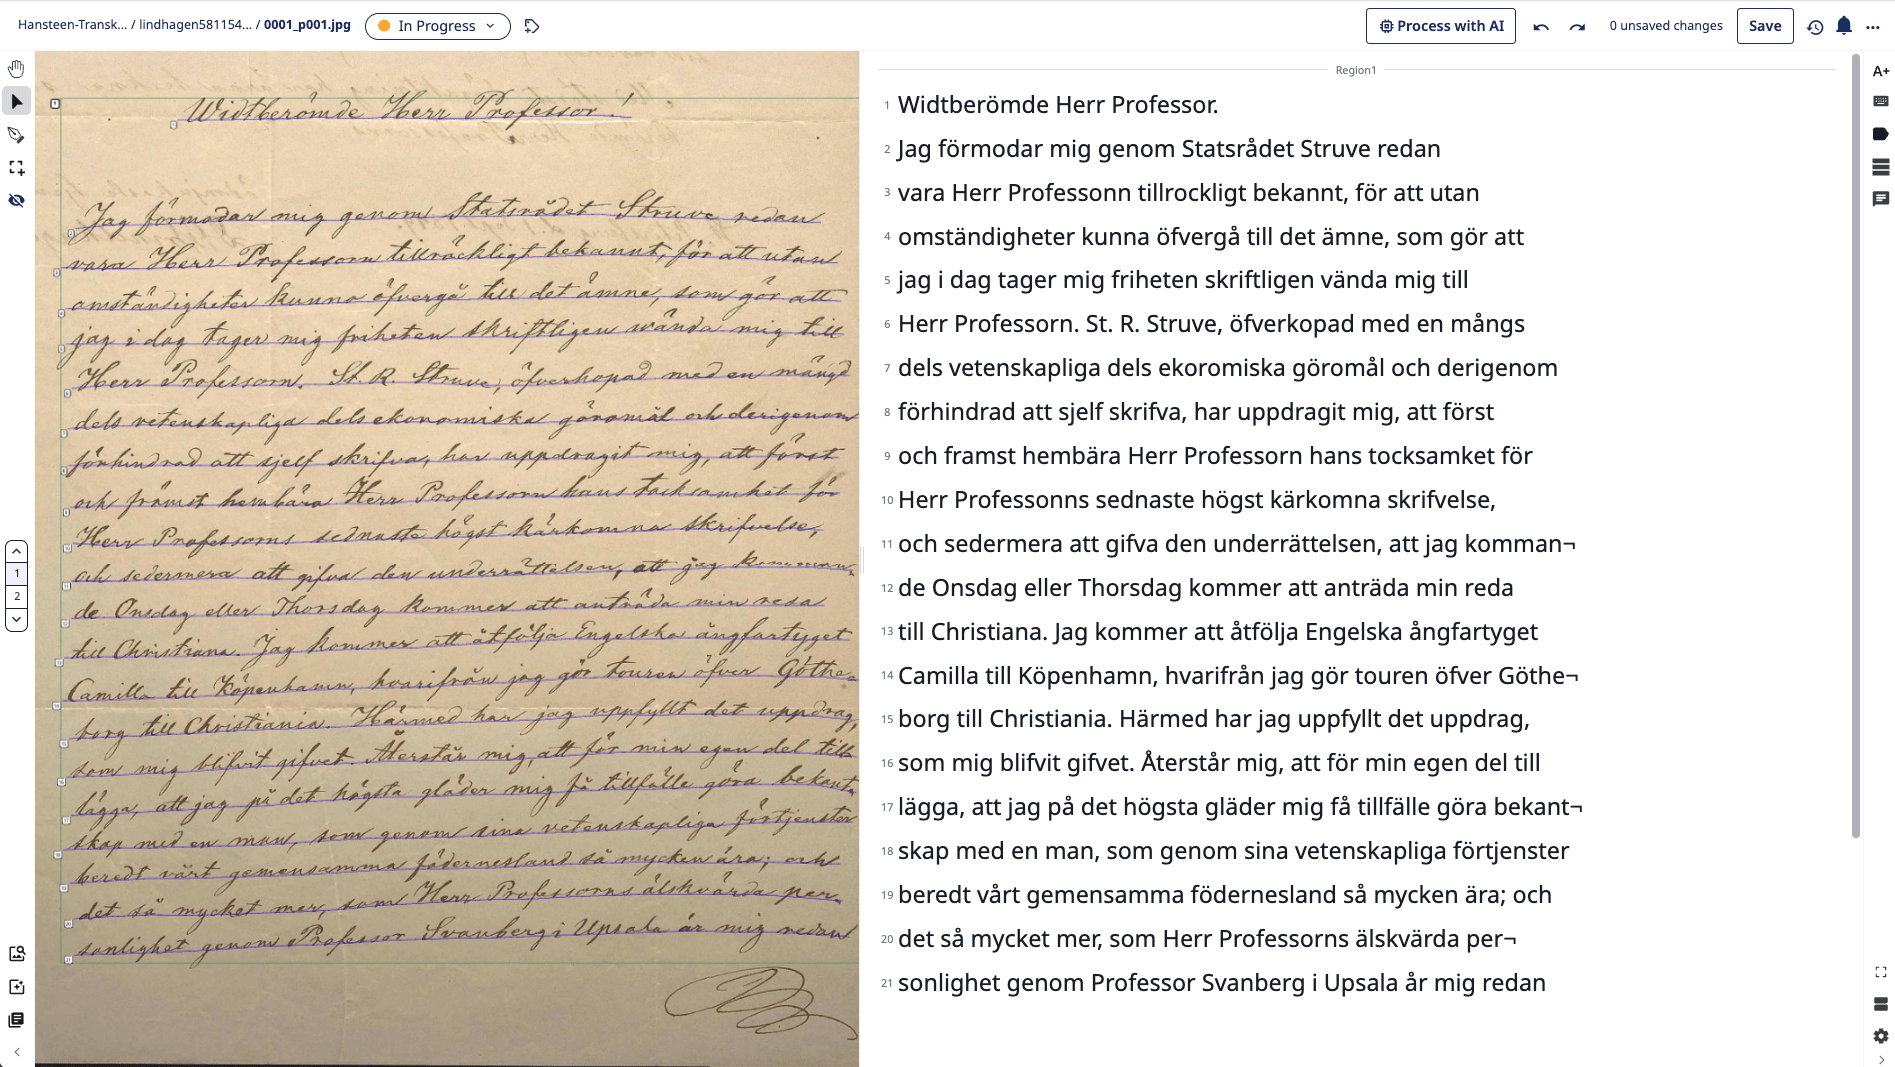 Hansteen-Transk... / lindhagen581154... / 0001_p001.jpg
In Progress
Process with AI
0 unsaved changes
Save
Widtberömde Herr Professor!
Jag förmodar mig genom Statsrådet Struve redan
vara Herr Professorn tillräckligt bekannt, för att utan
omständigheter kunna öfvergå till det ämne, som gör att
jag i dag tager mig friheten skriftligen vända mig till
Herr Professorn. St. R. Struve, öfverhopad med en mängd
dels vetenskapliga dels ekonomiska göromål och derigenom
förhindrad att sjelf skrifva, har uppdragit mig, att först
och främst hembära Herr Professorn hans tacksamhet för
Herr Professorns sednaste högst kärkomna skrifvelse,
och sedermera att gifva den underrättelsen, att jag komman-
de Onsdag eller Thorsdag kommer att anträda min resa
till Christiana. Jag kommer att åtfölja Engelska ångfartyget
Camilla till Köpenhamn, hvarifrån jag gör touren öfver Göthe-
borg till Christiania. Härmed har jag uppfyllt det uppdrag,
som mig blifvit gifvet. Återstår mig, att för min egen del till-
lägga, att jag på det högsta gläder mig få tillfälle göra bekant-
skap med en man, som genom sina vetenskapliga förtjenster
beredt vårt gemensamma fädernesland så mycken ära; och
det så mycket mer, som Herr Professorns älskvärda per-
sonlighet genom Professor Svanberg i Upsala är mig redan
1
2
Region1
1 Widtberömde Herr Professor.
2 Jag förmodar mig genom Statsrådet Struve redan
3 vara Herr Professonn tillrockligt bekannt, för att utan
4 omständigheter kunna öfvergå till det ämne, som gör att
5 jag i dag tager mig friheten skriftligen vända mig till
6 Herr Professorn. St. R. Struve, öfverkopad med en mångs
7 dels vetenskapliga dels ekoromiska göromål och derigenom
8 förhindrad att sjelf skrifva, har uppdragit mig, att först
9 och framst hembära Herr Professorn hans tocksamket för
10 Herr Professonns sednaste högst kärkomna skrifvelse,
11 och sedermera att gifva den underrättelsen, att jag komman¬
12 de Onsdag eller Thorsdag kommer att anträda min reda
13 till Christiana. Jag kommer att åtfölja Engelska ångfartyget
14 Camilla till Köpenhamn, hvarifrån jag gör touren öfver Göthe¬
15 borg till Christiania. Härmed har jag uppfyllt det uppdrag,
16 som mig blifvit gifvet. Återstår mig, att för min egen del till
17 lägga, att jag på det högsta gläder mig få tillfälle göra bekant¬
18 skap med en man, som genom sina vetenskapliga förtjenster
19 beredt vårt gemensamma födernesland så mycken ära; och
20 det så mycket mer, som Herr Professorns älskvärda per¬
21 sonlighet genom Professor Svanberg i Upsala år mig redan
A+